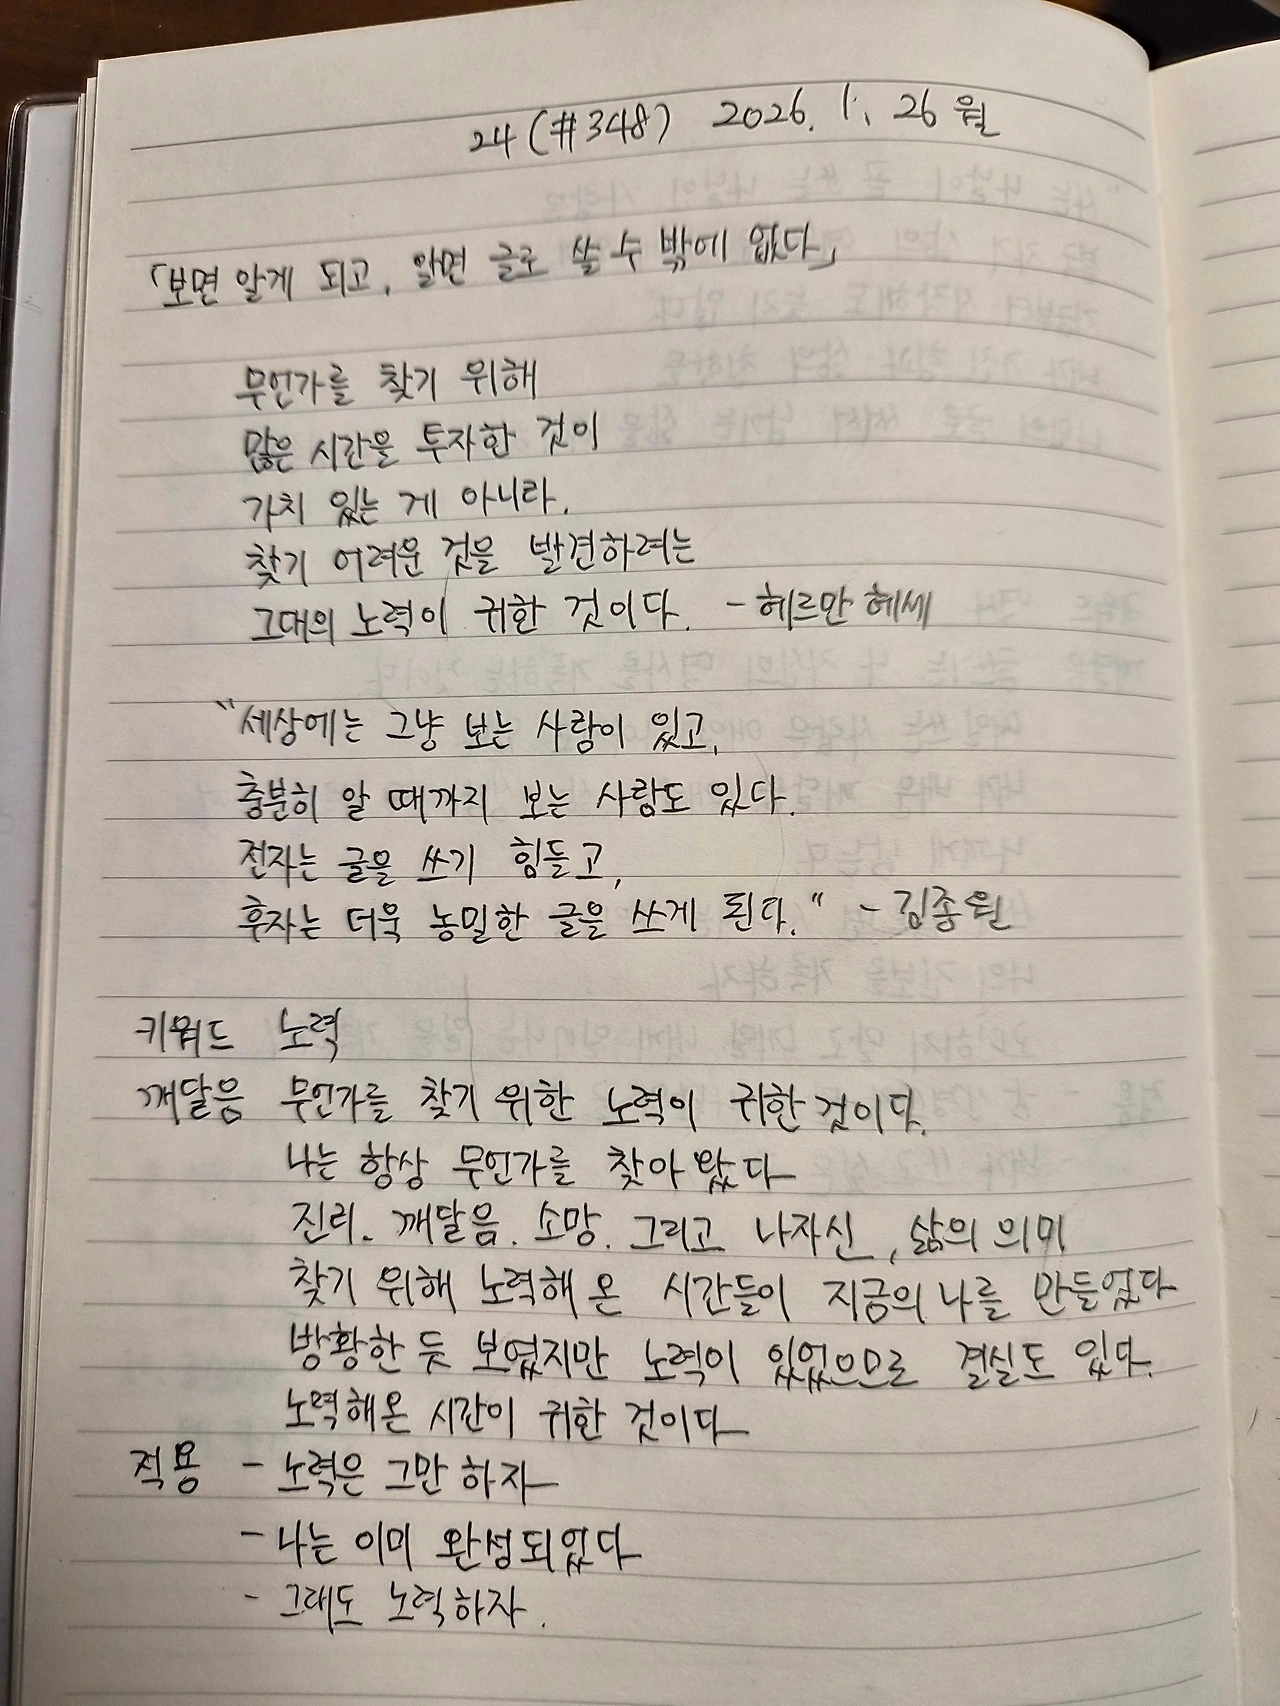 24 (#348) 2026. 1. 26 월
「보면 알게 되고, 알면 글로 쓸 수 밖에 없다」
무언가를 찾기 위해
많은 시간을 투자한 것이
가치 있는 게 아니라.
찾기 어려운 것을 발견하려는
그대의 노력이 귀한 것이다. - 헤르만 헤세
"세상에는 그냥 보는 사람이 있고,
충분히 알 때까지 보는 사람도 있다.
전자는 글을 쓰기 힘들고,
후자는 더욱 농밀한 글을 쓰게 된다." - 김종원
키워드 노력
깨달음 무언가를 찾기 위한 노력이 귀한 것이다.
나는 항상 무언가를 찾아 왔다
진리. 깨달음. 소망. 그리고 나자신, 삶의 의미
찾기 위해 노력해 온 시간들이 지금의 나를 만들었다
방황한 듯 보였지만 노력이 있었으므로 결실도 있다.
노력해온 시간이 귀한 것이다
적용 - 노력은 그만 하자
- 나는 이미 완성되었다
- 그래도 노력하자.